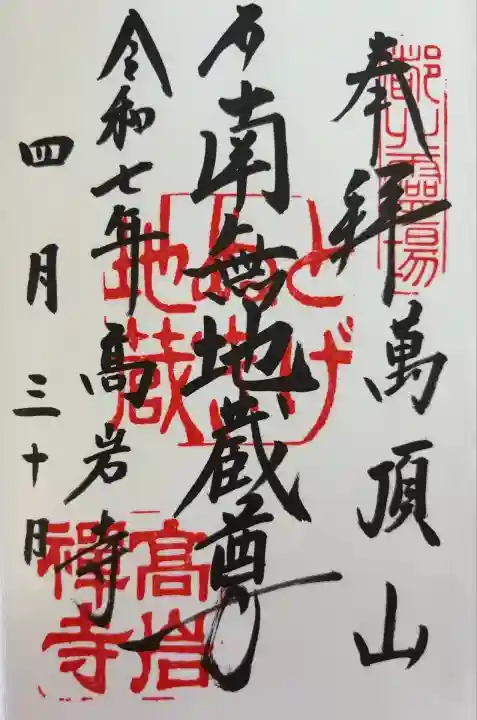 奉拜 萬頂山
南無地蔵尊
令和七年 高岩寺
四月三十日
とげ
ぬき
地蔵
高岩
禪寺